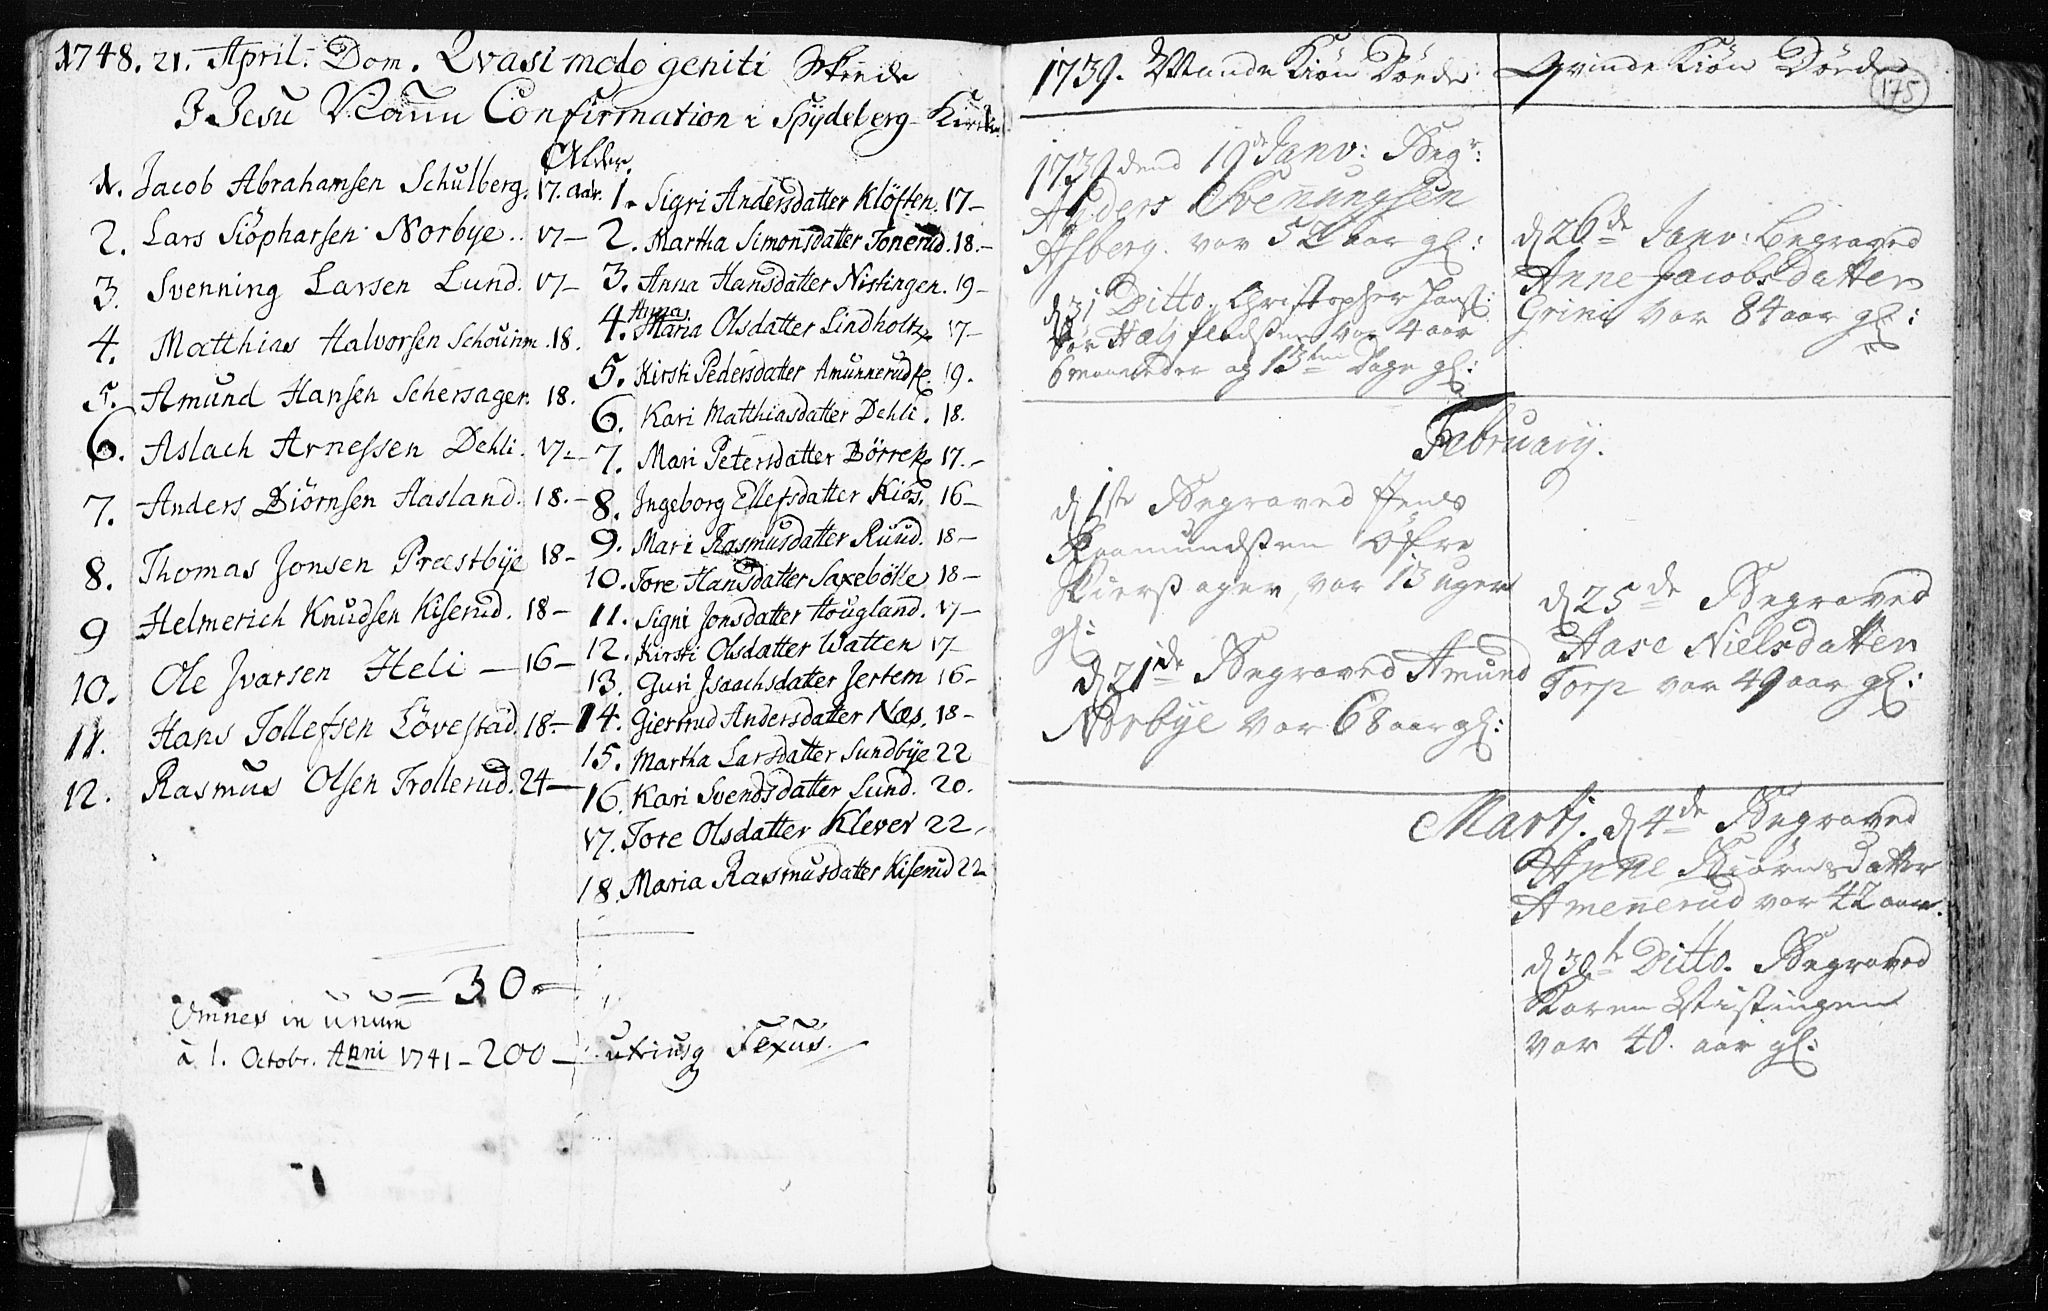 1748. 21. April. Dom. Qvasi modo geniti Skeede
I Jesu Nafn Confirmation i Spydeberg Kirke
Alder
1. Jacob Abrahamsen Schulberg. 17. aar.
2. Lars Siöpharsen Norbye.. 17 –
3. Svenning Larsen Lund. 17 –
4. Matthias Halvorsen Schouinm. 18.
5. Amund Hansen Schersager. 18.
6. Aslach Arnessen Dehli. 17. –
7. Anders Biörnsen Aasland. 18. –
8. Thomas Jonsen Præstbÿe 18 –
9 Helmerich Knudsen Kiserud. 18 –
10. Ole Jvarsen Heli – 16 –
11. Hans Tollefsen Lövestad. 18. –
12. Rasmus Olsen Trollerud. 24 –
1. Sigri Andersdatter Klöften. 17 –
2. Martha Simonsdatter Tonerud. 18. –
3. Anna Hansdatter Nistingen. 19 –
Anna
4. Maria Olsdatter Lindholtz 17 –
5. Kirsti Pedersdatter Amunnerud 19.
6. Kari Matthiasdatter Dehli. 18.
7. Mari Petersdatter Börrek 17. –
8. Jngeborg Ellefsdatter Kios. 16 –
9. Mari Rasmusdatter Ruud. 18 –
10. Tore Hansdatter Saxebölle 18 –
11. Signi Jonsdatter Hougland. 17 –
12. Kirsti Olsdatter Watten 17 –
13. Guri Jsaachsdatter Jertem 16 –
14. Giertrud Andersdatter Næs. 18 –
15. Martha Larsdatter Sundbÿe 22
16. Kari Svendsdatter Lund. 20.
17. Tore Olsdatter Klever 22,
18. Maria Rasmusdatter Kiserud 22
= 30. –
Omnes in unum
à 1. Octobr. Anni 1741 – 200 – utriusq Sexus.
1739. Mande Kiön Döede
Qvinde Kiön Döede
175
1739 dend 19de Janv: Begr:
Anders Svenungsen
Asberg. var 52 aar gl:
d 31 Ditto. Christopher Jonss:
Hal pladssen var 4 aar
6 maaneder og 13ten Dage gl:
d 26de Janv: Begraved
Anne Jacobsdatter
Grini var 84 aar gl:
February.
d 1ste Begraved Jens
Raamundssen Öfre
Skiersager, var 13 uger
gl:
d 21de Begraved Amund
Norbÿe var 68 aar gl:
d 25de Begraved
Aase Nielsdatter
Torp var 49 aar gl:
Martj. d 4de Begraved
Anne Biörnsdatter
Amenerud var 42 aar.
d 30te Ditto. Begraved
Karen Nistingen
var 40. aar gl: